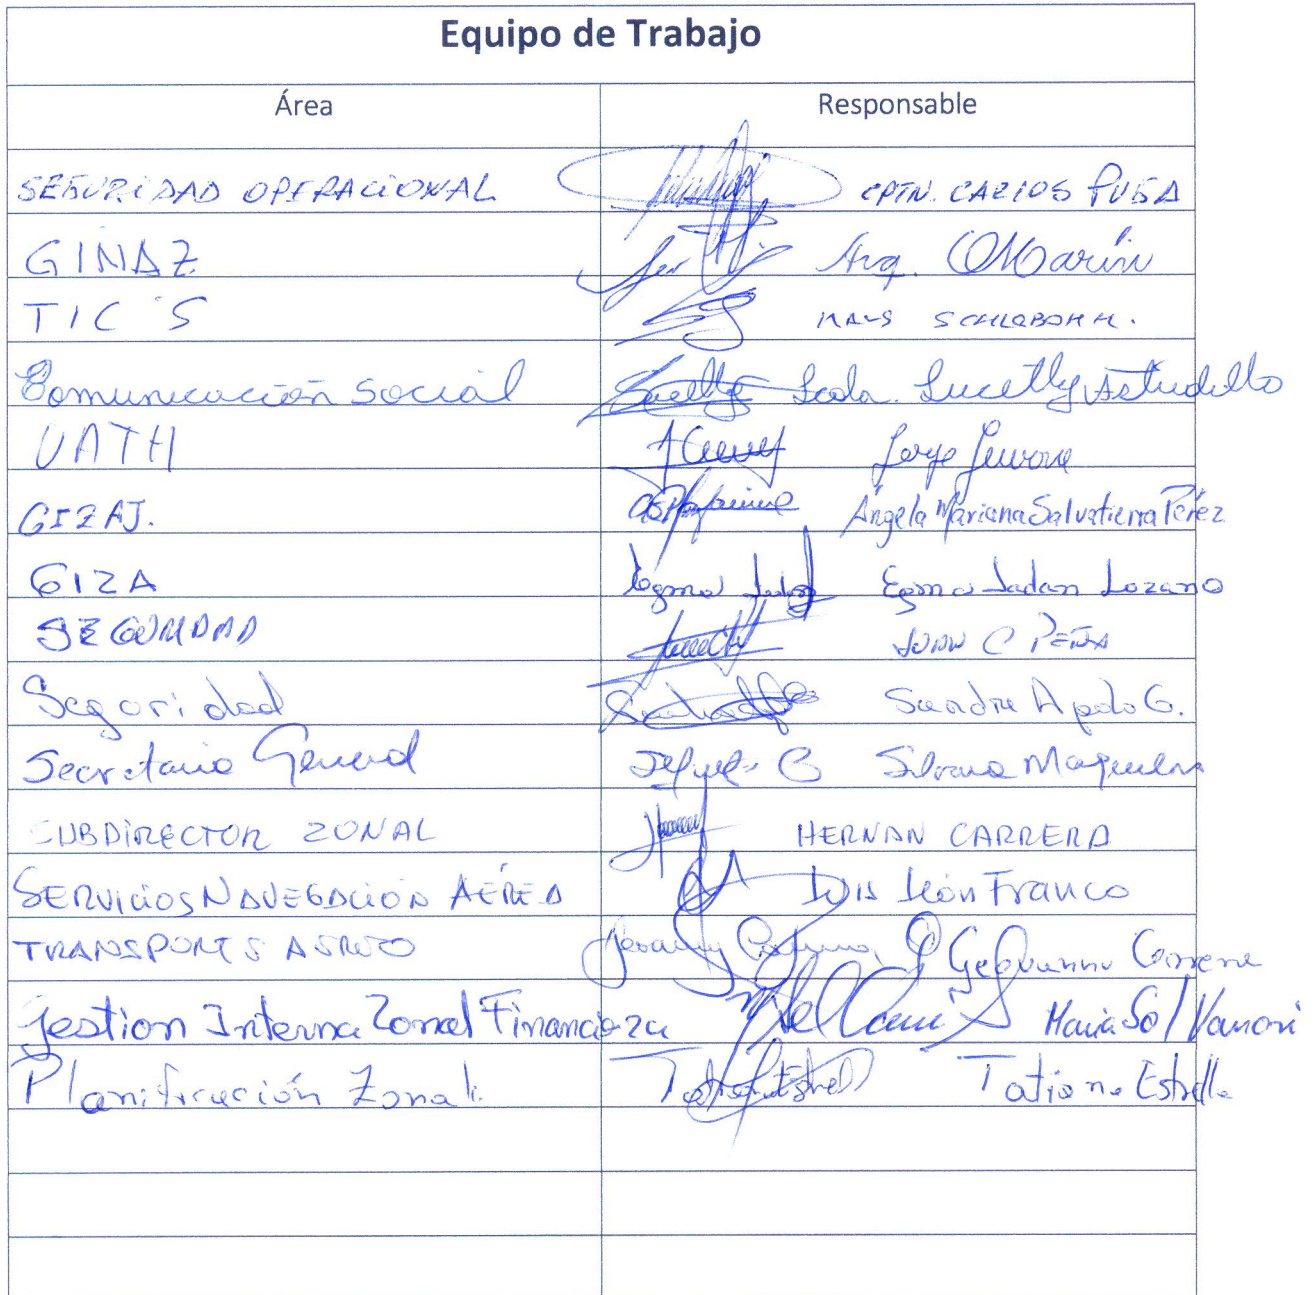 Equipo de Trabajo
Área Responsable
SEGURIDAD OPERACIONAL CPTN. CARLOS PUGA
GINAZ Arq. O Marin
TIC'S
Comunicación Social Lcda. Lucelly Astudillo
UATH Jorge
GIZAJ. Ángela Mariana Salvatierra Pérez
GIZA Egma Jadan Lozano
SEGURIDAD JUAN C PEÑA
Seguridad Sandra Apolo G.
Secretaria General Silvana
SUBDIRECTOR ZONAL HERNAN CARRERA
SERVICIOS NAVEGACIÓN AÉREA Luis León Franco
TRANSPORTE AEREO
Gestion Interna Zonal Financiera Maria Sol
Planificación Zonal. Tatiana Estrella